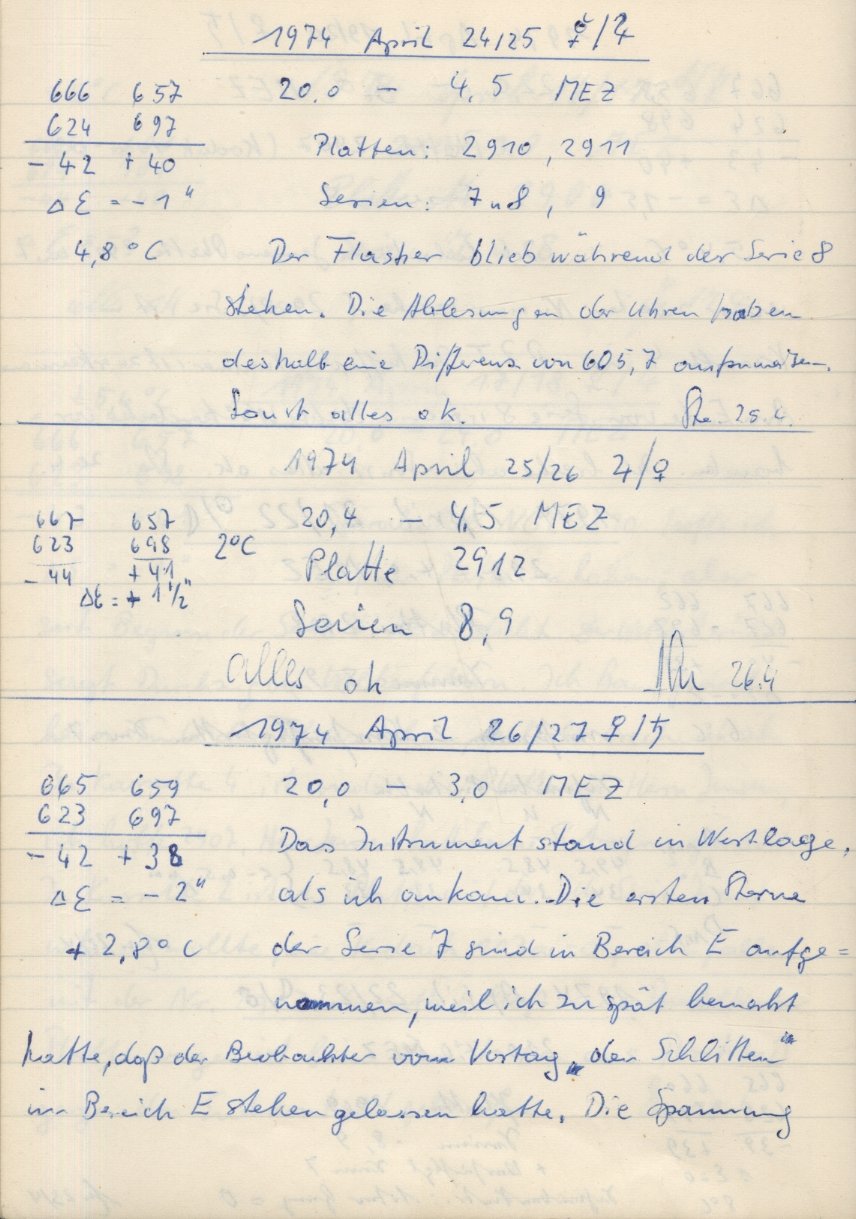 1974 April 24/25 ☿/♃
666 657 20.0 – 4.5 MEZ
624 697
– 42 + 40 Platten: 2910, 2911
Δε = – 1" Serien: 7 u 8, 9
4,8 °C Der Flasher blieb während der Serie 8
stehen. Die Ablesungen der Uhren haben
deshalb eine Differenz von 605,7 aufzuweisen.
Sonst alles ok. 25.4.
1974 April 25/26 ♃/♀
667 657 20,4 – 4.5 MEZ
623 698 2°C
– 44 + 41 Platte 2912
Δε = + 1 1/2"
Serien 8,9
alles ok 26.4
1974 April 26/27 ♀/♄
665 659 20,0 – 3,0 MEZ
623 697
– 42 + 38 Das Instrument stand in Westlage,
Δε = – 2" als ich ankam. Die ersten Sterne
+ 2,8° C der Serie 7 sind in Bereich E aufge=
nommen, weil ich zu spät bemerkt
hatte, daß der Beobachter vom Vortag „den Schlitten“
in Bereich E stehen gelassen hatte. Die Spannung